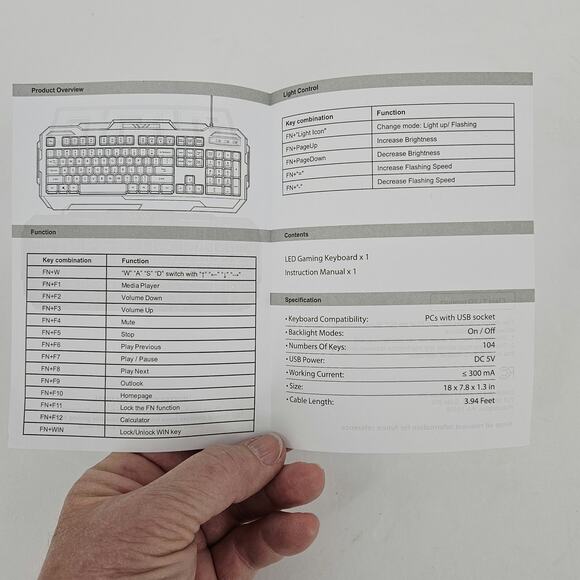 Product Overview
Function
Key combination Function
FN+W "W" "A" "S" "D" switch with "↑" "←" "↓" "→"
FN+F1 Media Player
FN+F2 Volume Down
FN+F3 Volume Up
FN+F4 Mute
FN+F5 Stop
FN+F6 Play Previous
FN+F7 Play / Pause
FN+F8 Play Next
FN+F9 Outlook
FN+F10 Homepage
FN+F11 Lock the FN function
FN+F12 Calculator
FN+WIN Lock/Unlock WIN key
Light Control
Key combination Function
FN+"Light Icon" Change mode: Light up/ Flashing
FN+PageUp Increase Brightness
FN+PageDown Decrease Brightness
FN+"+" Increase Flashing Speed
FN+"-" Decrease Flashing Speed
Contents
LED Gaming Keyboard x 1
Instruction Manual x 1
Specification
• Keyboard Compatibility: PCs with USB socket
• Backlight Modes: On / Off
• Numbers Of Keys: 104
• USB Power: DC 5V
• Working Current: ≤ 300 mA
• Size: 18 x 7.8 x 1.3 in
• Cable Length: 3.94 Feet